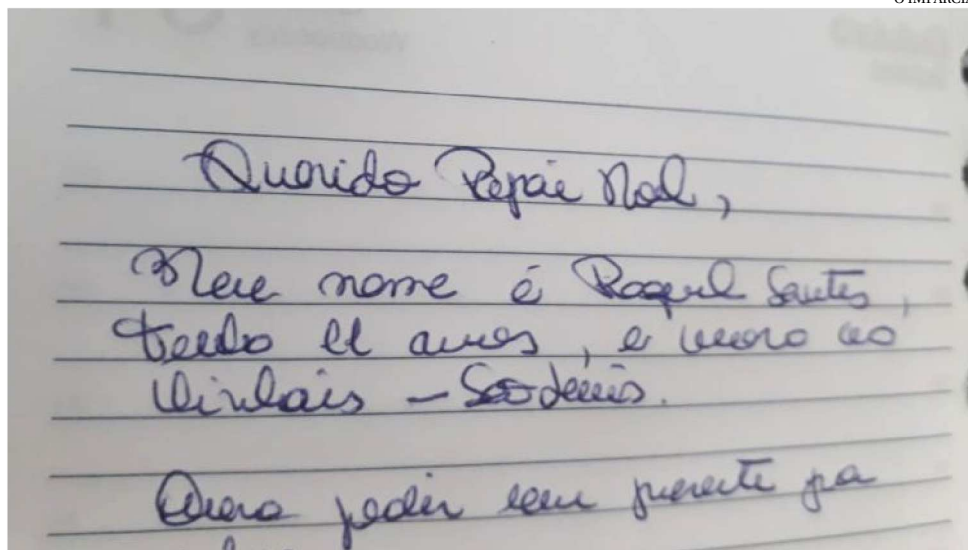 O IMPARCIA
Querido Papai Noel,
Meu nome é Raquel Santos,
tenho 11 anos, e moro no
Vinhais – São Luís.
Quero pedir um presente pra